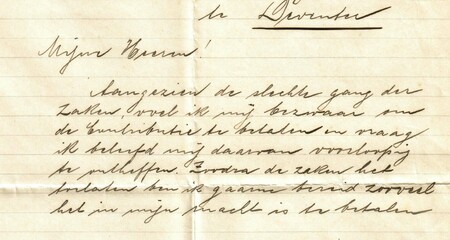 te Deventer
Mijne Heeren!
Aangezien de slechte gang der
zaken, voel ik mij bezwaar om
de Contributie te betalen en vraag
ik beleefd mij daarvan voorloopig
te ontheffen. Zoodra de zaken het
toelaten ben ik gaarne bereid zooveel
het in mijn macht is te betalen